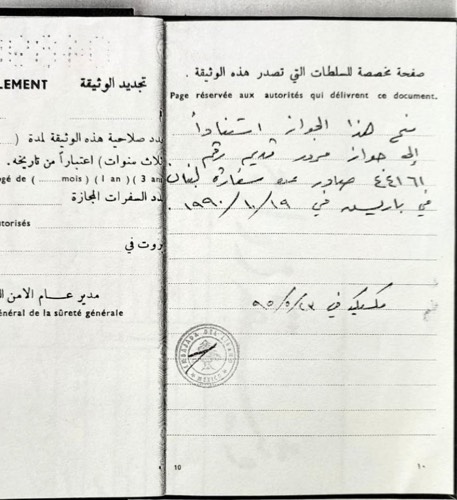 LEMENT
تجديد الوثيقة
دد صلاحية هذه الوثيقة لمدة (
لاث سنوات) اعتباراً من تاريخه.
gé de (........ mois) ( 1 an) ( 3 an
دد السفرات المجازة
utorisés
روت في
مدير عام الامن ال
énéral de la sûreté générale
صفحة مخصصة للسلطات التي تصدر هذه الوثيقة .
Page réservée aux autorités qui délivrent ce document.
منح هذا الجواز استناداً
إلى جواز مرور قديم رقم
صادر عن سفارة لبنان
في باريس في ١٩٩٠/١٠/١٩.
مكسيكو في
EMBAJADA DEL LIBANO
MEXICO
10
١٠